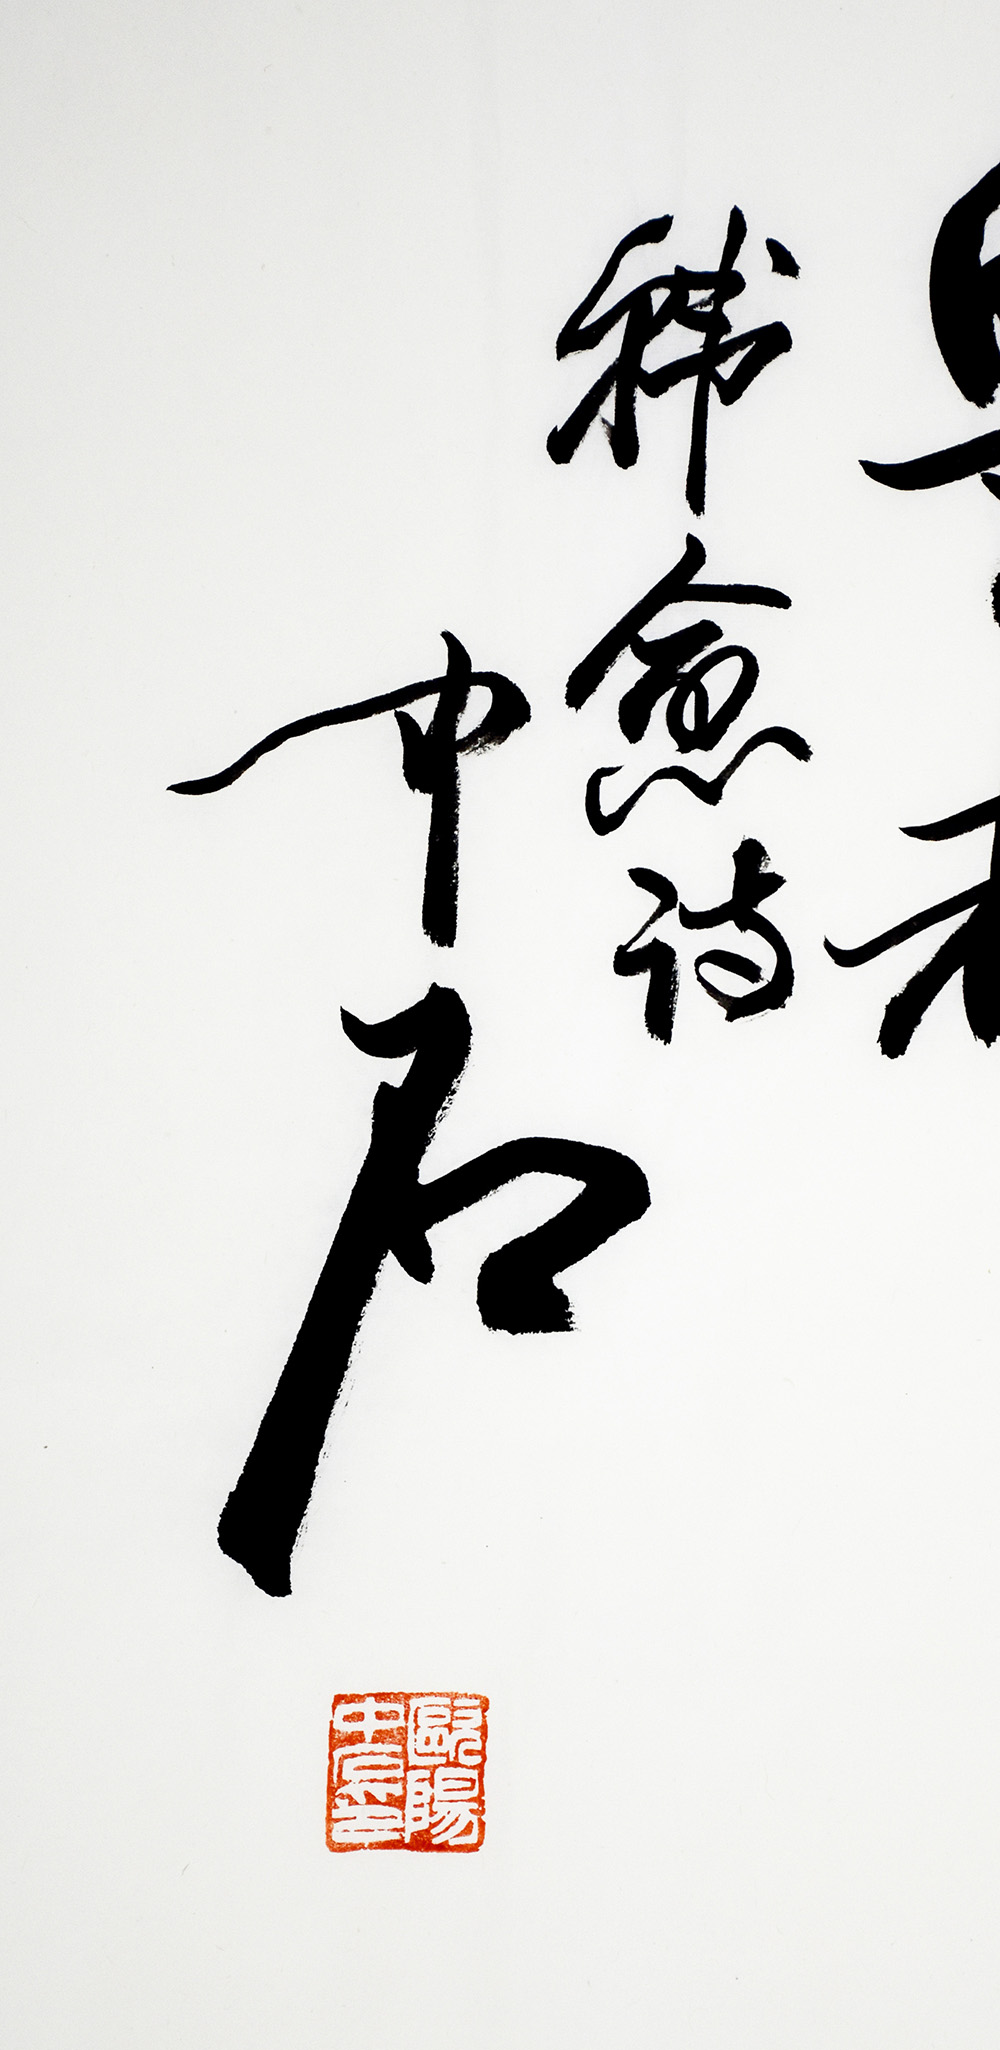 韩愈诗
中石
歐陽
中石